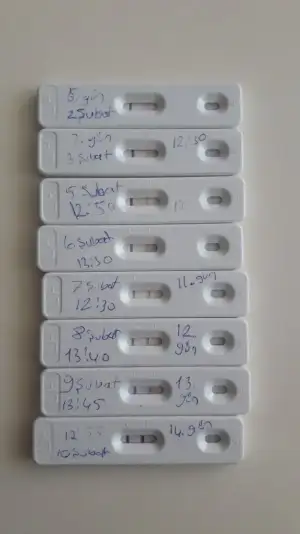 5. gün
2 Şubat
7. gün 12:30
3 Şubat
5 Şubat
12:50
6 Şubat
13:30
7 Şubat 11. gün
12:30
8 Şubat 12
13:40 gün
9 Şubat 13.
13:45 gün
12 14. gün
10 Şubat